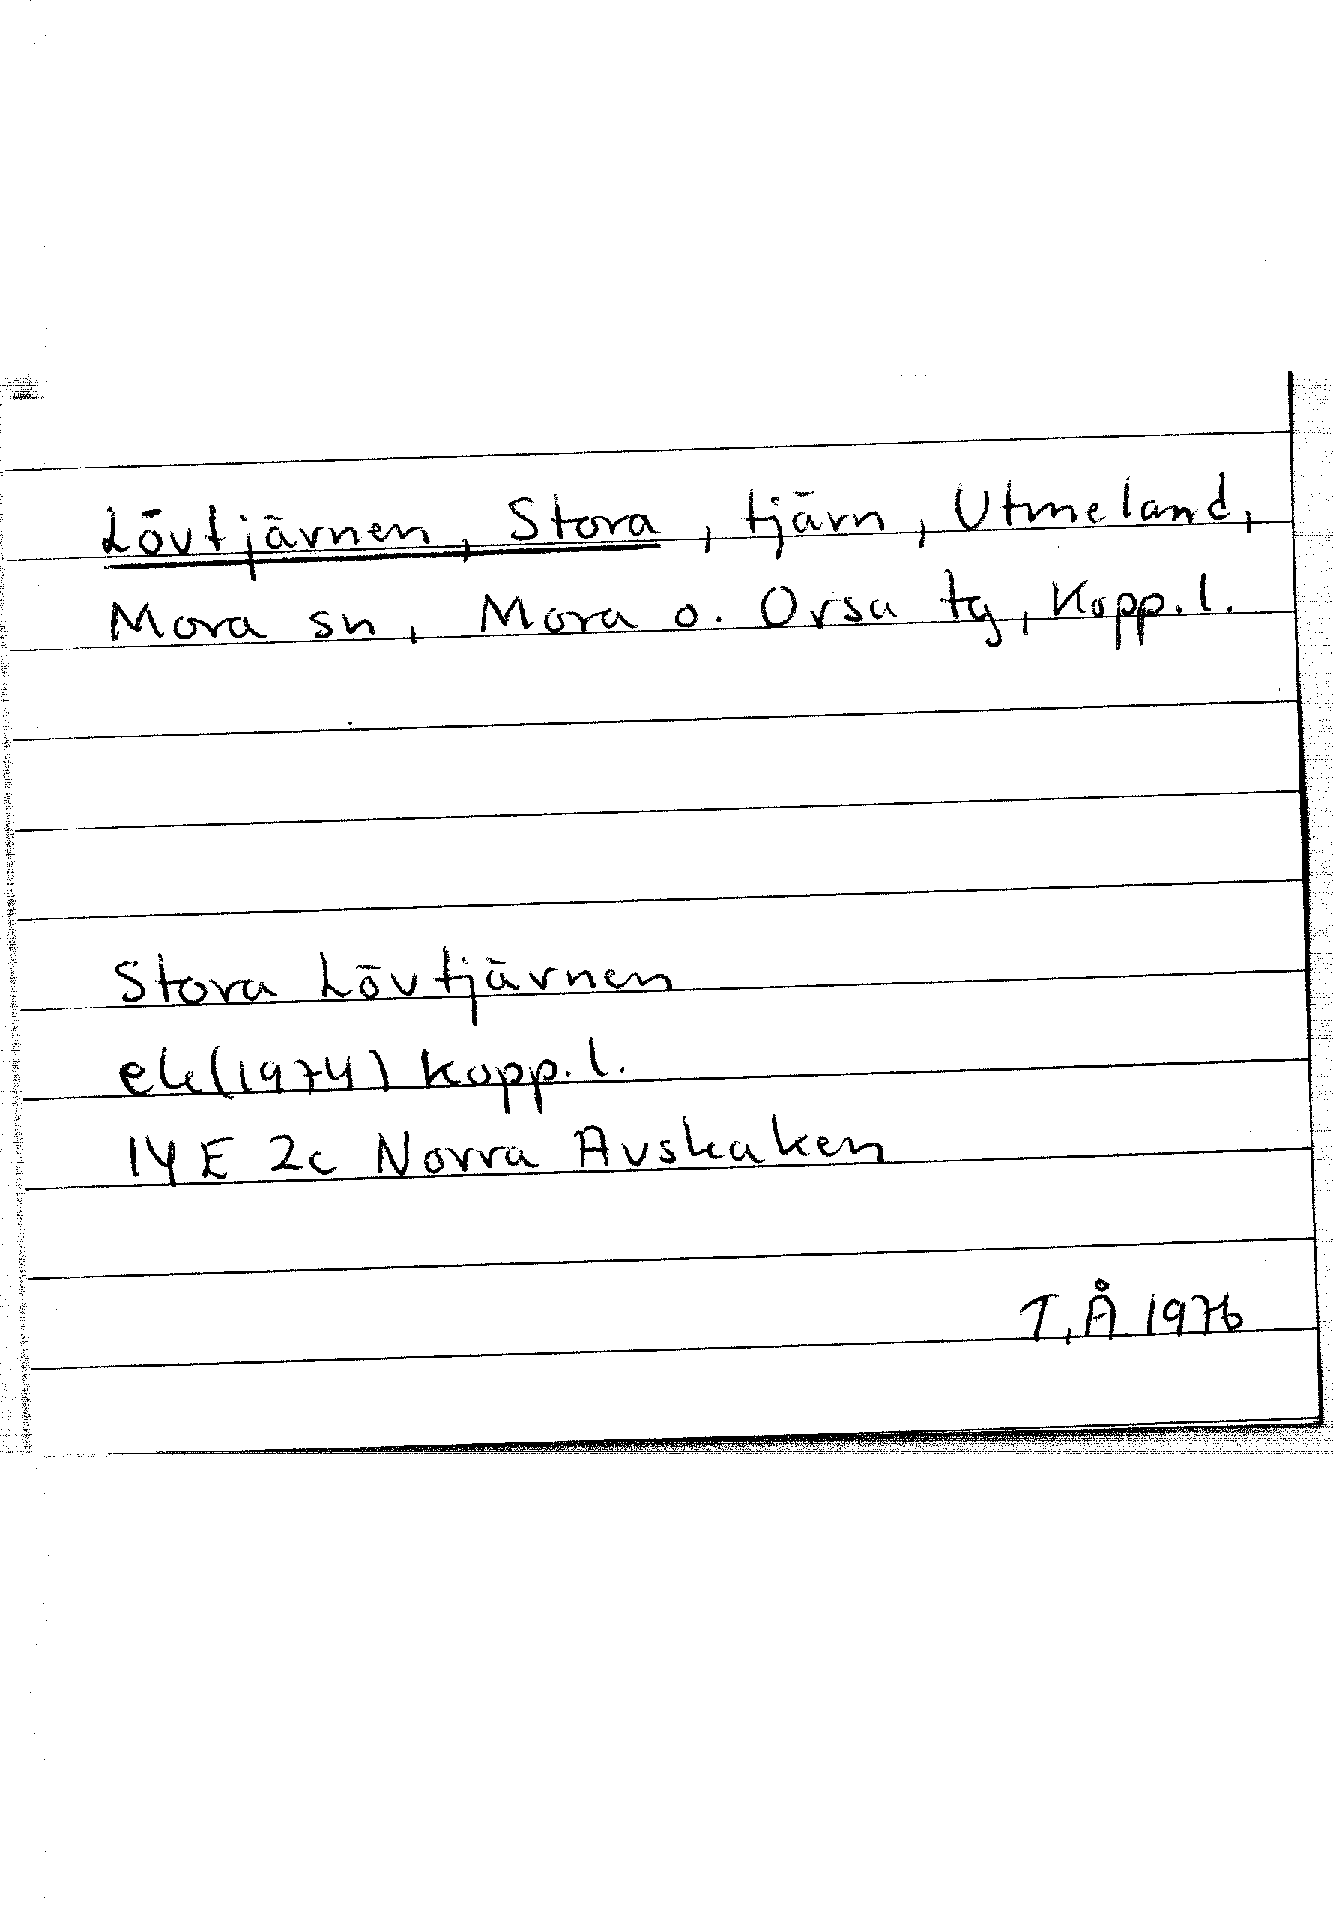 Lövtjärnen, Stora, tjärn, Utmeland,
Mora sn, Mora o. Orsa tg, Kopp.l.
Stora Lövtjärnen
ek(1974) Kopp.l.
14E 2c Norra Avskaken
T.Å 1976